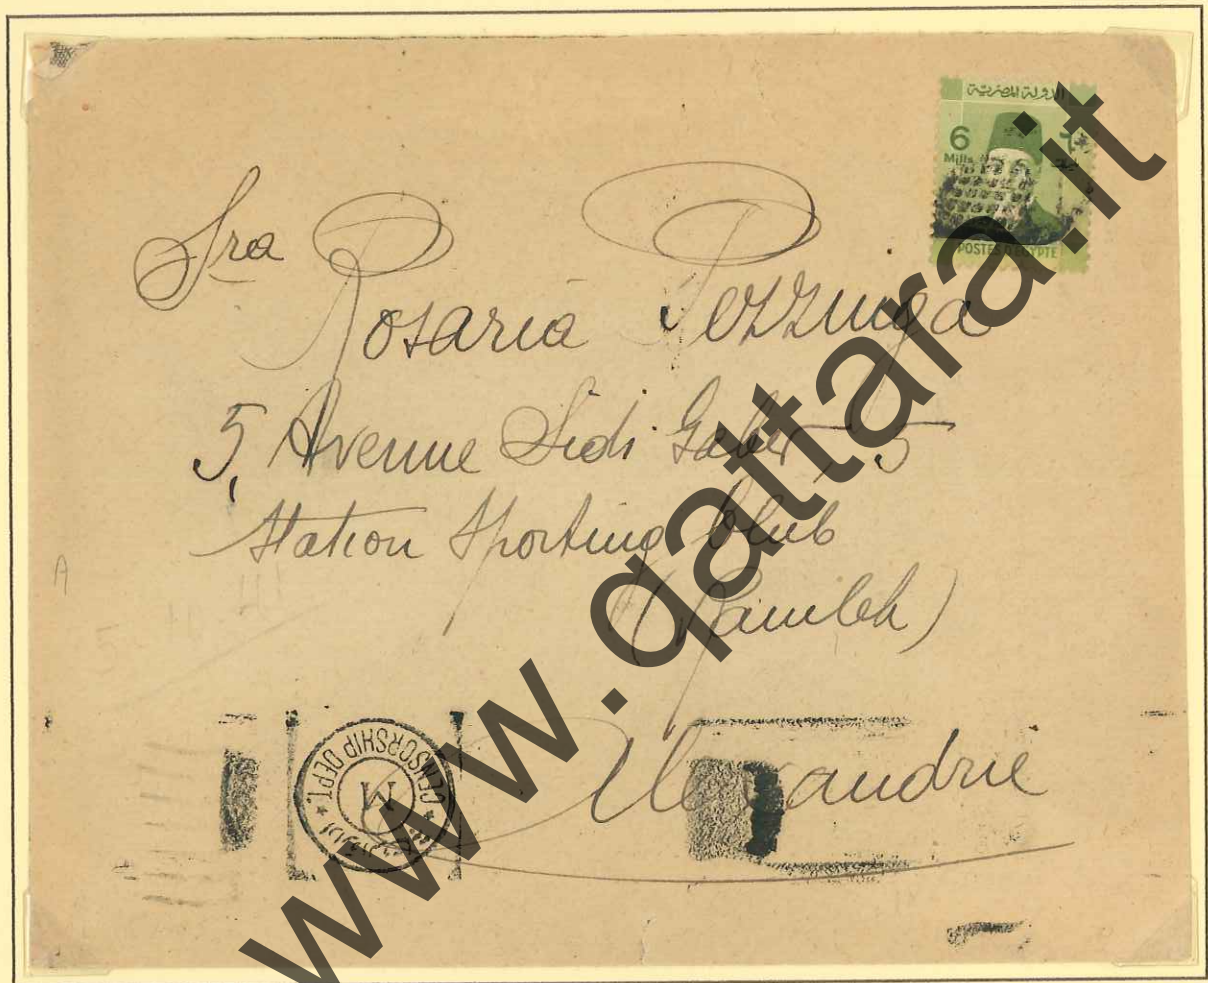 الدولة المصرية
6
Mills
POSTES D'EGYPTE
Sra Rosaria Pozzuga
5, Avenue Sidi Gaber, 5
Station Sporting Club
(Ramleh)
Alexandrie
CENSORSHIP DEPT.
M
A
www.qattara.it